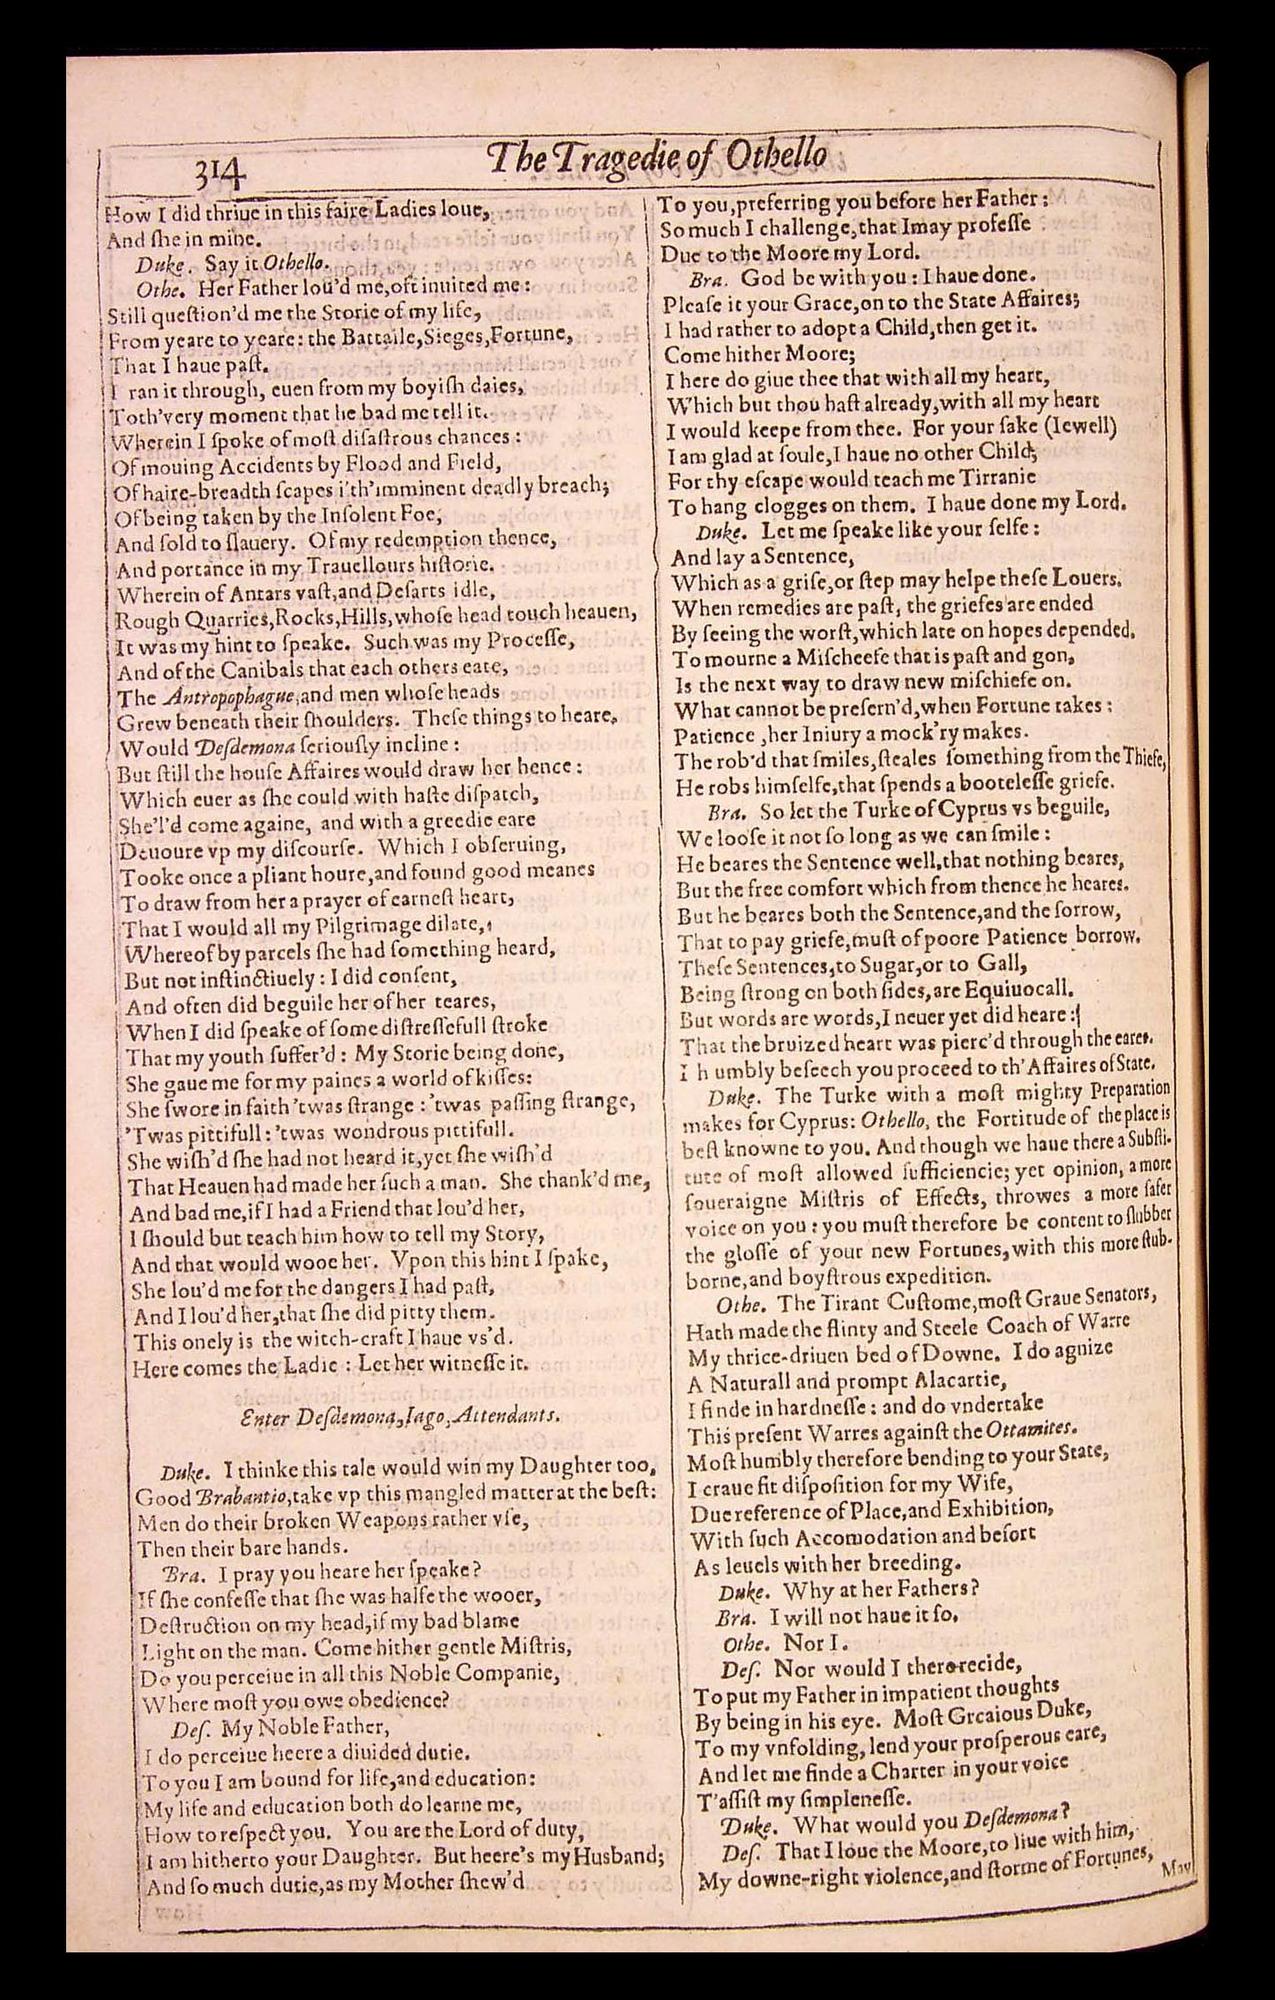 314
The Tragedie of Othello
How I did thriue in this faire Ladies loue,
And ſhe in mine.
Duke. Say it Othello.
Othe. Her Father lou'd me, oft inuited me:
Still queſtion'd me the Storie of my life,
From yeare to yeare: the Battaile, Sieges, Fortune,
That I haue paſt.
I ran it through, euen from my boyiſh daies,
Toth'very moment that he bad me tell it.
Wherein I ſpoke of moſt diſaſtrous chances:
Of mouing Accidents by Flood and Field,
Of haire-breadth ſcapes i'th'imminent deadly breach;
Of being taken by the Inſolent Foe,
And ſold to ſlauery. Of my redemption thence,
And portance in my Trauellours hiſtorie.
Wherein of Antars vaſt, and Deſarts idle,
Rough Quarries, Rocks, Hills, whoſe head touch heauen,
It was my hint to ſpeake. Such was my Proceſſe,
And of the Canibals that each others eate,
The Antropophague, and men whoſe heads
Grew beneath their ſhoulders. Theſe things to heare,
Would Deſdemona ſeriouſly incline:
But ſtill the houſe Affaires would draw her hence:
Which euer as ſhe could with haſte diſpatch,
She'l'd come againe, and with a greedie eare
Deuoure vp my diſcourſe. Which I obſeruing,
Tooke once a pliant houre, and found good meanes
To draw from her a prayer of earneſt heart,
That I would all my Pilgrimage dilate,
Whereof by parcels ſhe had ſomething heard,
But not inſtinctiuely: I did conſent,
And often did beguile her of her teares,
When I did ſpeake of ſome diſtreſſefull ſtroke
That my youth ſuffer'd: My Storie being done,
She gaue me for my paines a world of kiſſes:
She ſwore in faith 'twas ſtrange: 'twas paſſing ſtrange,
'Twas pittifull: 'twas wondrous pittifull.
She wiſh'd ſhe had not heard it, yet ſhe wiſh'd
That Heauen had made her ſuch a man. She thank'd me,
And bad me, if I had a Friend that lou'd her,
I ſhould but teach him how to tell my Story,
And that would wooe her. Vpon this hint I ſpake,
She lou'd me for the dangers I had paſt,
And I lou'd her, that ſhe did pitty them.
This onely is the witch-craft I haue vs'd.
Here comes the Ladie: Let her witneſſe it.
Enter Deſdemona, Iago, Attendants.
Duke. I thinke this tale would win my Daughter too,
Good Brabantio, take vp this mangled matter at the beſt:
Men do their broken Weapons rather vſe,
Then their bare hands.
Bra. I pray you heare her ſpeake?
If ſhe confeſſe that ſhe was halfe the wooer,
Deſtruction on my head, if my bad blame
Light on the man. Come hither gentle Miſtris,
Do you perceiue in all this Noble Companie,
Where moſt you owe obedience?
Deſ. My Noble Father,
I do perceiue heere a diuided dutie.
To you I am bound for life, and education:
My life and education both do learne me,
How to reſpect you. You are the Lord of duty,
I am hitherto your Daughter. But heere's my Husband;
And ſo much dutie, as my Mother ſhew'd
To you, preferring you before her Father:
So much I challenge, that I may profeſſe
Due to the Moore my Lord.
Bra. God be with you: I haue done.
Pleaſe it your Grace, on to the State Affaires;
I had rather to adopt a Child, then get it.
Come hither Moore;
I here do giue thee that with all my heart,
Which but thou haſt already, with all my heart
I would keepe from thee. For your ſake (Iewell)
I am glad at ſoule, I haue no other Child,
For thy eſcape would teach me Tirranie
To hang clogges on them. I haue done my Lord.
Duke. Let me ſpeake like your ſelfe:
And lay a Sentence,
Which as a griſe, or ſtep may helpe theſe Louers.
When remedies are paſt, the griefes are ended
By ſeeing the worſt, which late on hopes depended.
To mourne a Miſcheefe that is paſt and gon,
Is the next way to draw new miſchiefe on.
What cannot be preſern'd, when Fortune takes:
Patience, her Iniury a mock'ry makes.
The rob'd that ſmiles, ſteales ſomething from the Thiefe,
He robs himſelfe, that ſpends a booteleſſe griefe.
Bra. So let the Turke of Cyprus vs beguile,
We looſe it not ſo long as we can ſmile:
He beares the Sentence well, that nothing beares,
But the free comfort which from thence he heares.
But he beares both the Sentence, and the ſorrow,
That to pay griefe, muſt of poore Patience borrow.
Theſe Sentences, to Sugar, or to Gall,
Being ſtrong on both ſides, are Equiuocall.
But words are words, I neuer yet did heare:
That the bruized heart was pierc'd through the eares.
I humbly beſeech you proceed to th'Affaires of State.
Duke. The Turke with a moſt mighty Preparation
makes for Cyprus: Othello, the Fortitude of the place is
beſt knowne to you. And though we haue there a Subſti-
tute of moſt allowed ſufficiencie; yet opinion, a more
ſoueraigne Miſtris of Effects, throwes a more ſafer
voice on you: you muſt therefore be content to ſlubber
the gloſſe of your new Fortunes, with this more ſtub-
borne, and boyſtrous expedition.
Othe. The Tirant Cuſtome, moſt Graue Senators,
Hath made the flinty and Steele Coach of Warre
My thrice-driuen bed of Downe. I do agnize
A Naturall and prompt Alacartie,
I finde in hardneſſe: and do vndertake
This preſent Warres againſt the Ottamites.
Moſt humbly therefore bending to your State,
I craue fit diſpoſition for my Wife,
Due reference of Place, and Exhibition,
With ſuch Accomodation and beſort
As leuels with her breeding.
Duke. Why at her Fathers?
Bra. I will not haue it ſo.
Othe. Nor I.
Deſ. Nor would I there recide,
To put my Father in impatient thoughts
By being in his eye. Moſt Grcaious Duke,
To my vnfolding, lend your proſperous eare,
And let me finde a Charter in your voice
T'aſſiſt my ſimpleneſſe.
Duke. What would you Deſdemona?
Deſ. That I loue the Moore, to liue with him,
My downe-right violence, and ſtorme of Fortunes,
May